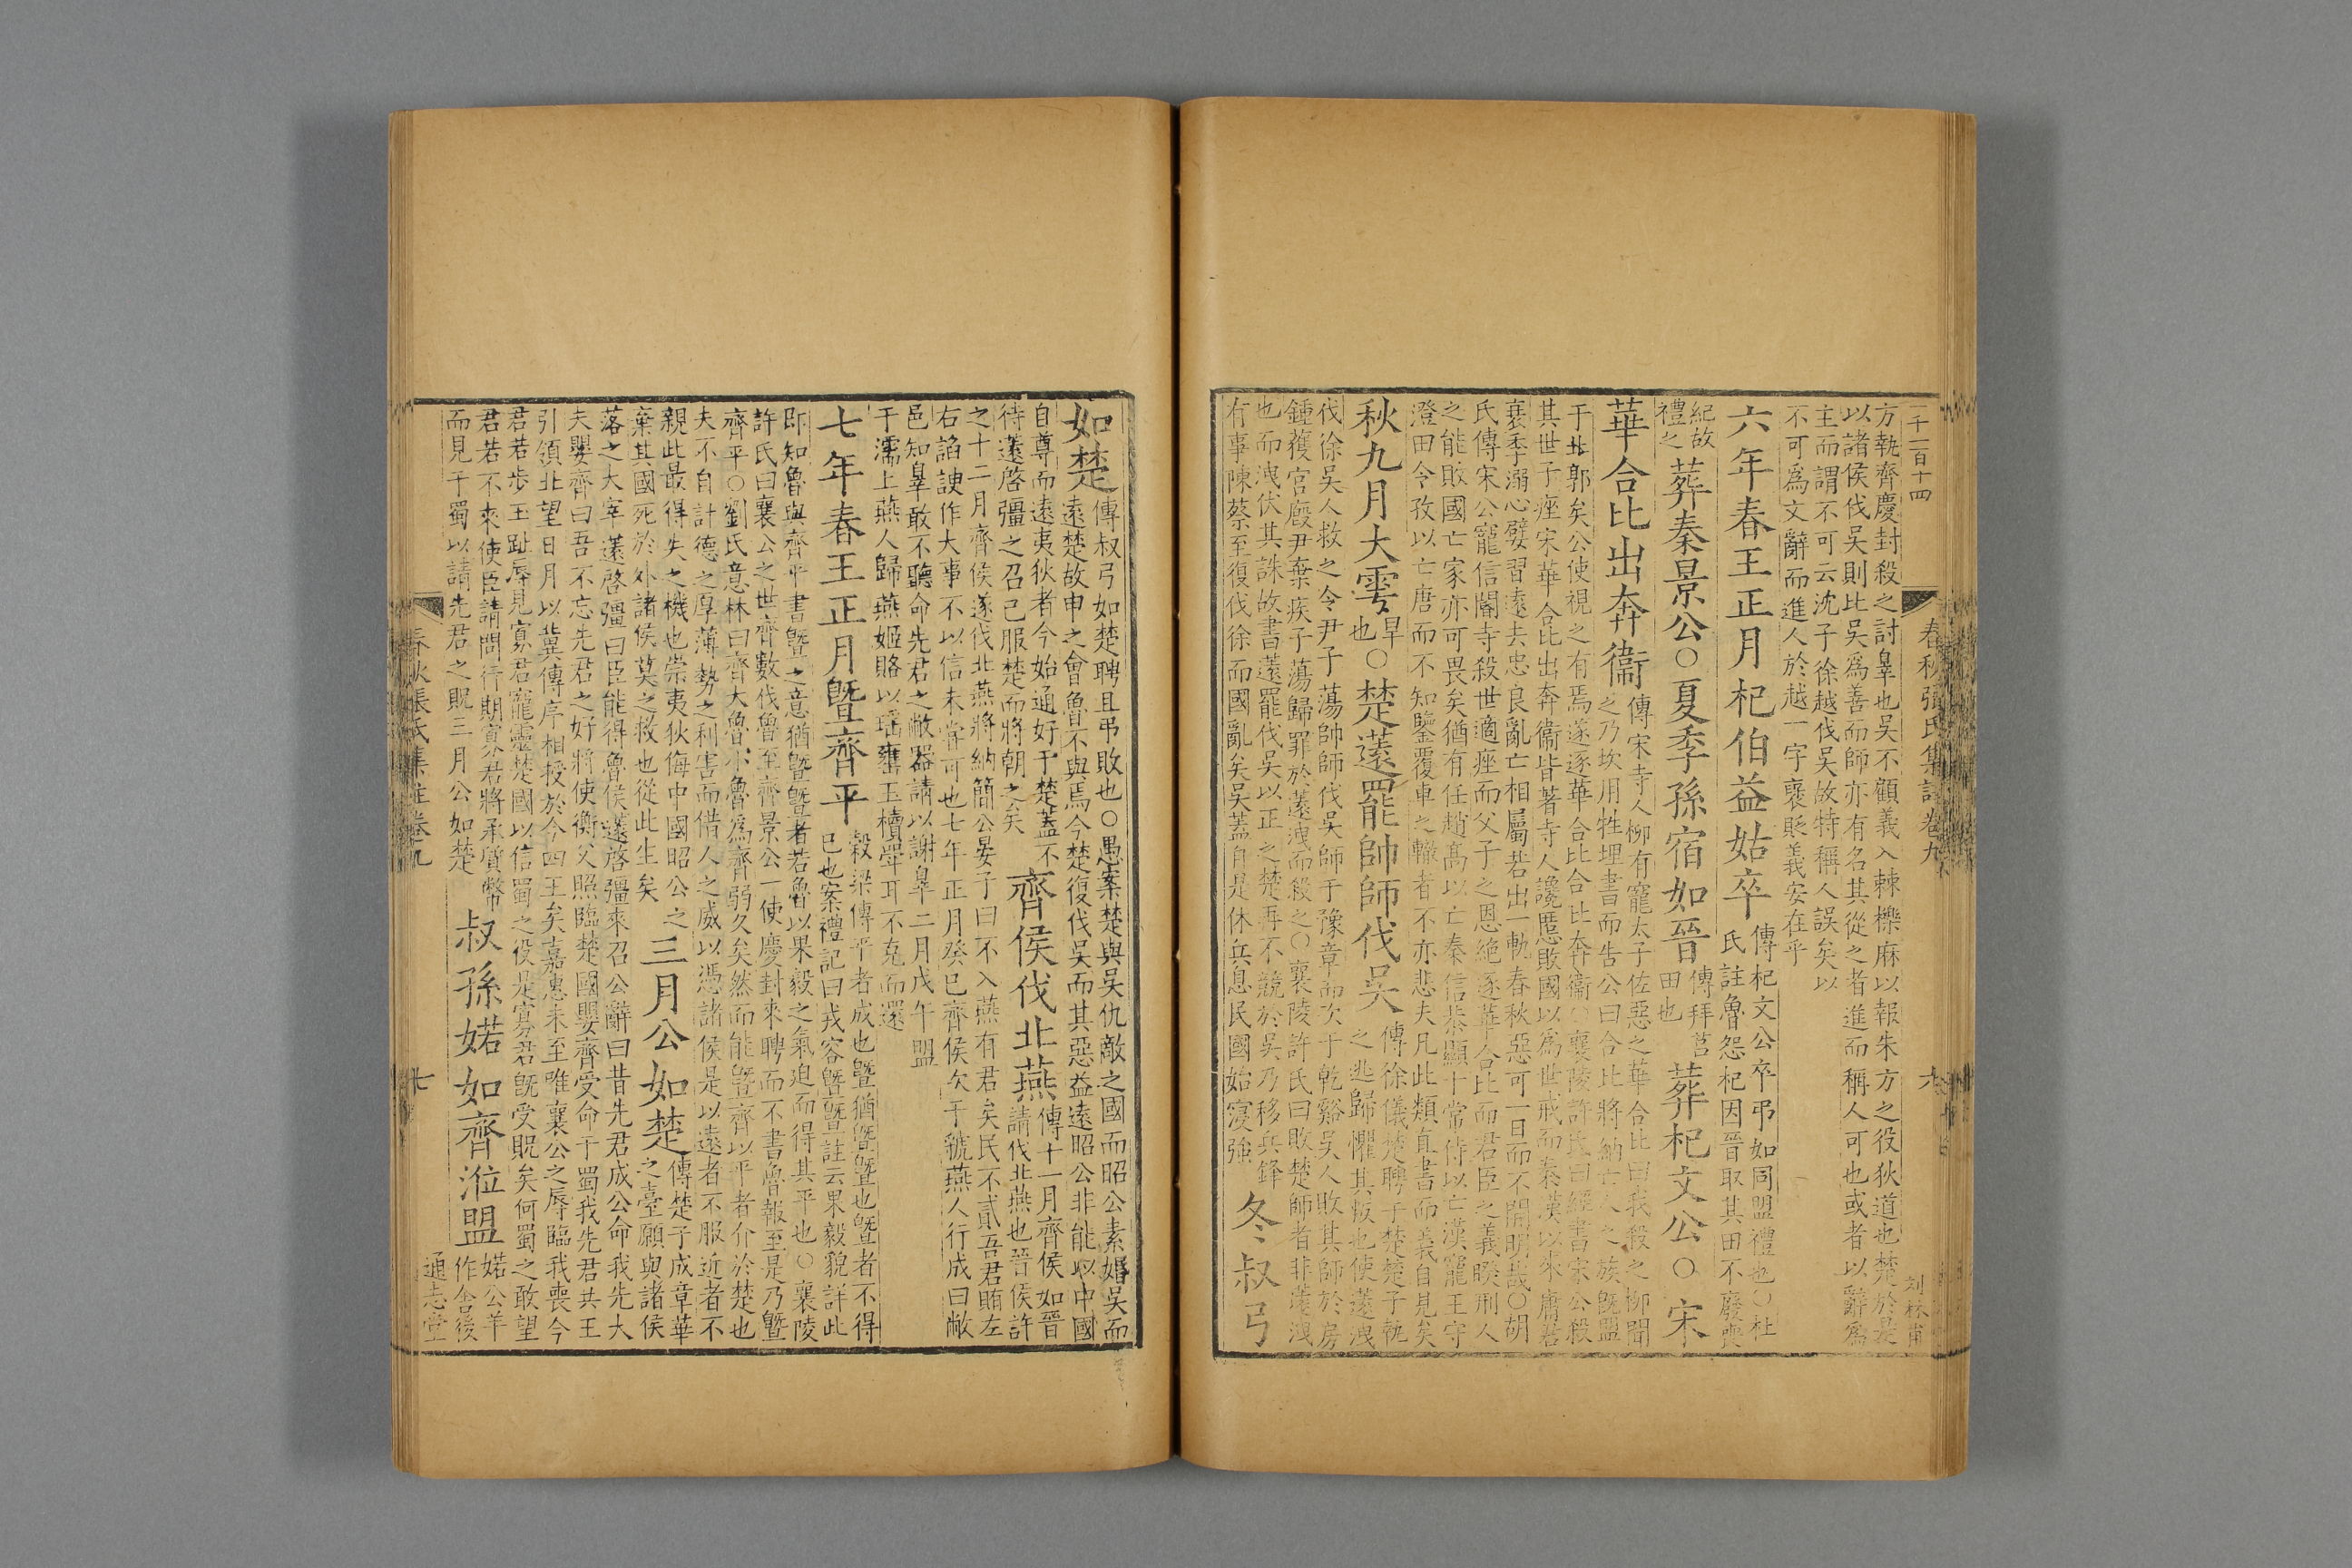 千一百十四
春秋張氏集註卷九
六
刘林甫
方執齊慶封殺之討辠也吳不顧義入棘櫟麻以報朱方之役狄道也楚於是
以諸侯伐吳則比吳爲善而師亦有名其從之者進而稱人可也或者以辭爲
主而謂不可云沈子徐越伐吳故特稱人誤矣以
不可爲文辭而進人於越一字襃貶義安在乎
六年春王正月杞伯益姑卒
傳杞文公卒弔如同盟禮也○杜
氏註魯怨杞因晉取其田不廢喪
紀故
禮之
葬秦景公○夏季孫宿如晉
傳拜莒
田也
葬杞文公○宋
華合比出奔衞
傳宋寺人柳有寵太子佐惡之華合比曰我殺之柳聞
之乃坎用牲埋書而告公曰合比將納亡人之族旣盟
于北郭矣公使視之有焉遂逐華合比合比奔衞○襄陵許氏曰經書宋公殺
其世子痤宋華合比出奔衞皆著寺人讒慝敗國以爲世戒而秦漢以來庸君
襄季溺心嬖習遠去忠良亂亡相屬若出一軌春秋惡可一日而不開明哉○胡
氏傳宋公寵信閽寺殺世適痤而父子之恩絶逐華合比而君臣之義睽刑人
之能敗國亡家亦可畏矣猶有任趙高以亡秦信恭顯十常侍以亡漢寵王守
澄田令孜以亡唐而不知鑒覆車之轍者不亦悲夫凡此類直書而義自見矣
秋九月大雩
旱
也
○楚薳罷帥師伐吳
傳徐儀楚聘于楚楚子執
之逃歸懼其叛也使薳洩
伐徐吳人救之令尹子蕩帥師伐吳師于豫章而次于乾谿吳人敗其師於房
鍾獲宮廐尹棄疾子蕩歸罪於薳洩而殺之○襄陵許氏曰敗楚師者非薳洩
也而洩伏其誅故書薳罷伐吳以正之楚再不競於吳乃移兵鋒
有事陳蔡至復伐徐而國亂矣吳蓋自是休兵息民國始寖強
冬叔弓
如楚
傳叔弓如楚聘且弔敗也○愚案楚與吳仇敵之國而昭公素婚吳而
遠楚故申之會魯不與焉今楚復伐吳而其惡益遠昭公非能以中國
自尊而遠夷狄者今始通好于楚蓋不
待薳啓彊之召已服楚而將朝之矣
齊侯伐北燕
傳十一月齊侯如晉
請伐北燕也晉侯許
之十二月齊侯遂伐北燕將納簡公晏子曰不入燕有君矣民不貳吾君賄左
右諂諛作大事不以信未嘗可也七年正月癸巳齊侯次于虢燕人行成曰敝
邑知辠敢不聽命先君之敝器請以謝辠二月戊午盟
于濡上燕人歸燕姬賂以瑤罋玉櫝斝耳不克而還
七年春王正月曁齊平
穀梁傳平者成也曁猶曁曁也曁者不得
已也案禮記曰戎容曁曁註云果毅貌詳此
卽知魯與齊平書曁之意猶曁曁者若魯以果毅之氣迫而得其平也○襄陵
許氏曰襄公之世齊數伐魯至齊景公一使慶封來聘而不書魯報至是乃曁
齊平○劉氏意林曰齊大魯小魯爲齊弱久矣然而能曁齊以平者介於楚也
夫不自計德之厚薄勢之利害而借人之威以憑諸侯是以遠者不服近者不
親此最得失之機也崇夷狄侮中國昭公之
棄其國死於外諸侯莫之救也從此生矣
三月公如楚
傳楚子成章華
之臺願與諸侯
落之大宰薳啓彊曰臣能得魯侯薳啓彊來召公辭曰昔先君成公命我先大
夫嬰齊曰吾不忘先君之好將使衡父照臨楚國嬰齊受命于蜀我先君共王
引領北望日月以冀傳序相授於今四王矣嘉惠未至唯襄公之辱臨我喪今
君若步玉趾辱見寡君寵靈楚國以信蜀之役是寡君旣受貺矣何蜀之敢望
君若不來使臣請問行期寡君將承質幣
而見于蜀以請先君之貺三月公如楚
叔孫婼如齊涖盟
婼公羊
作舍後
春秋張氏集註卷九
七
通志堂